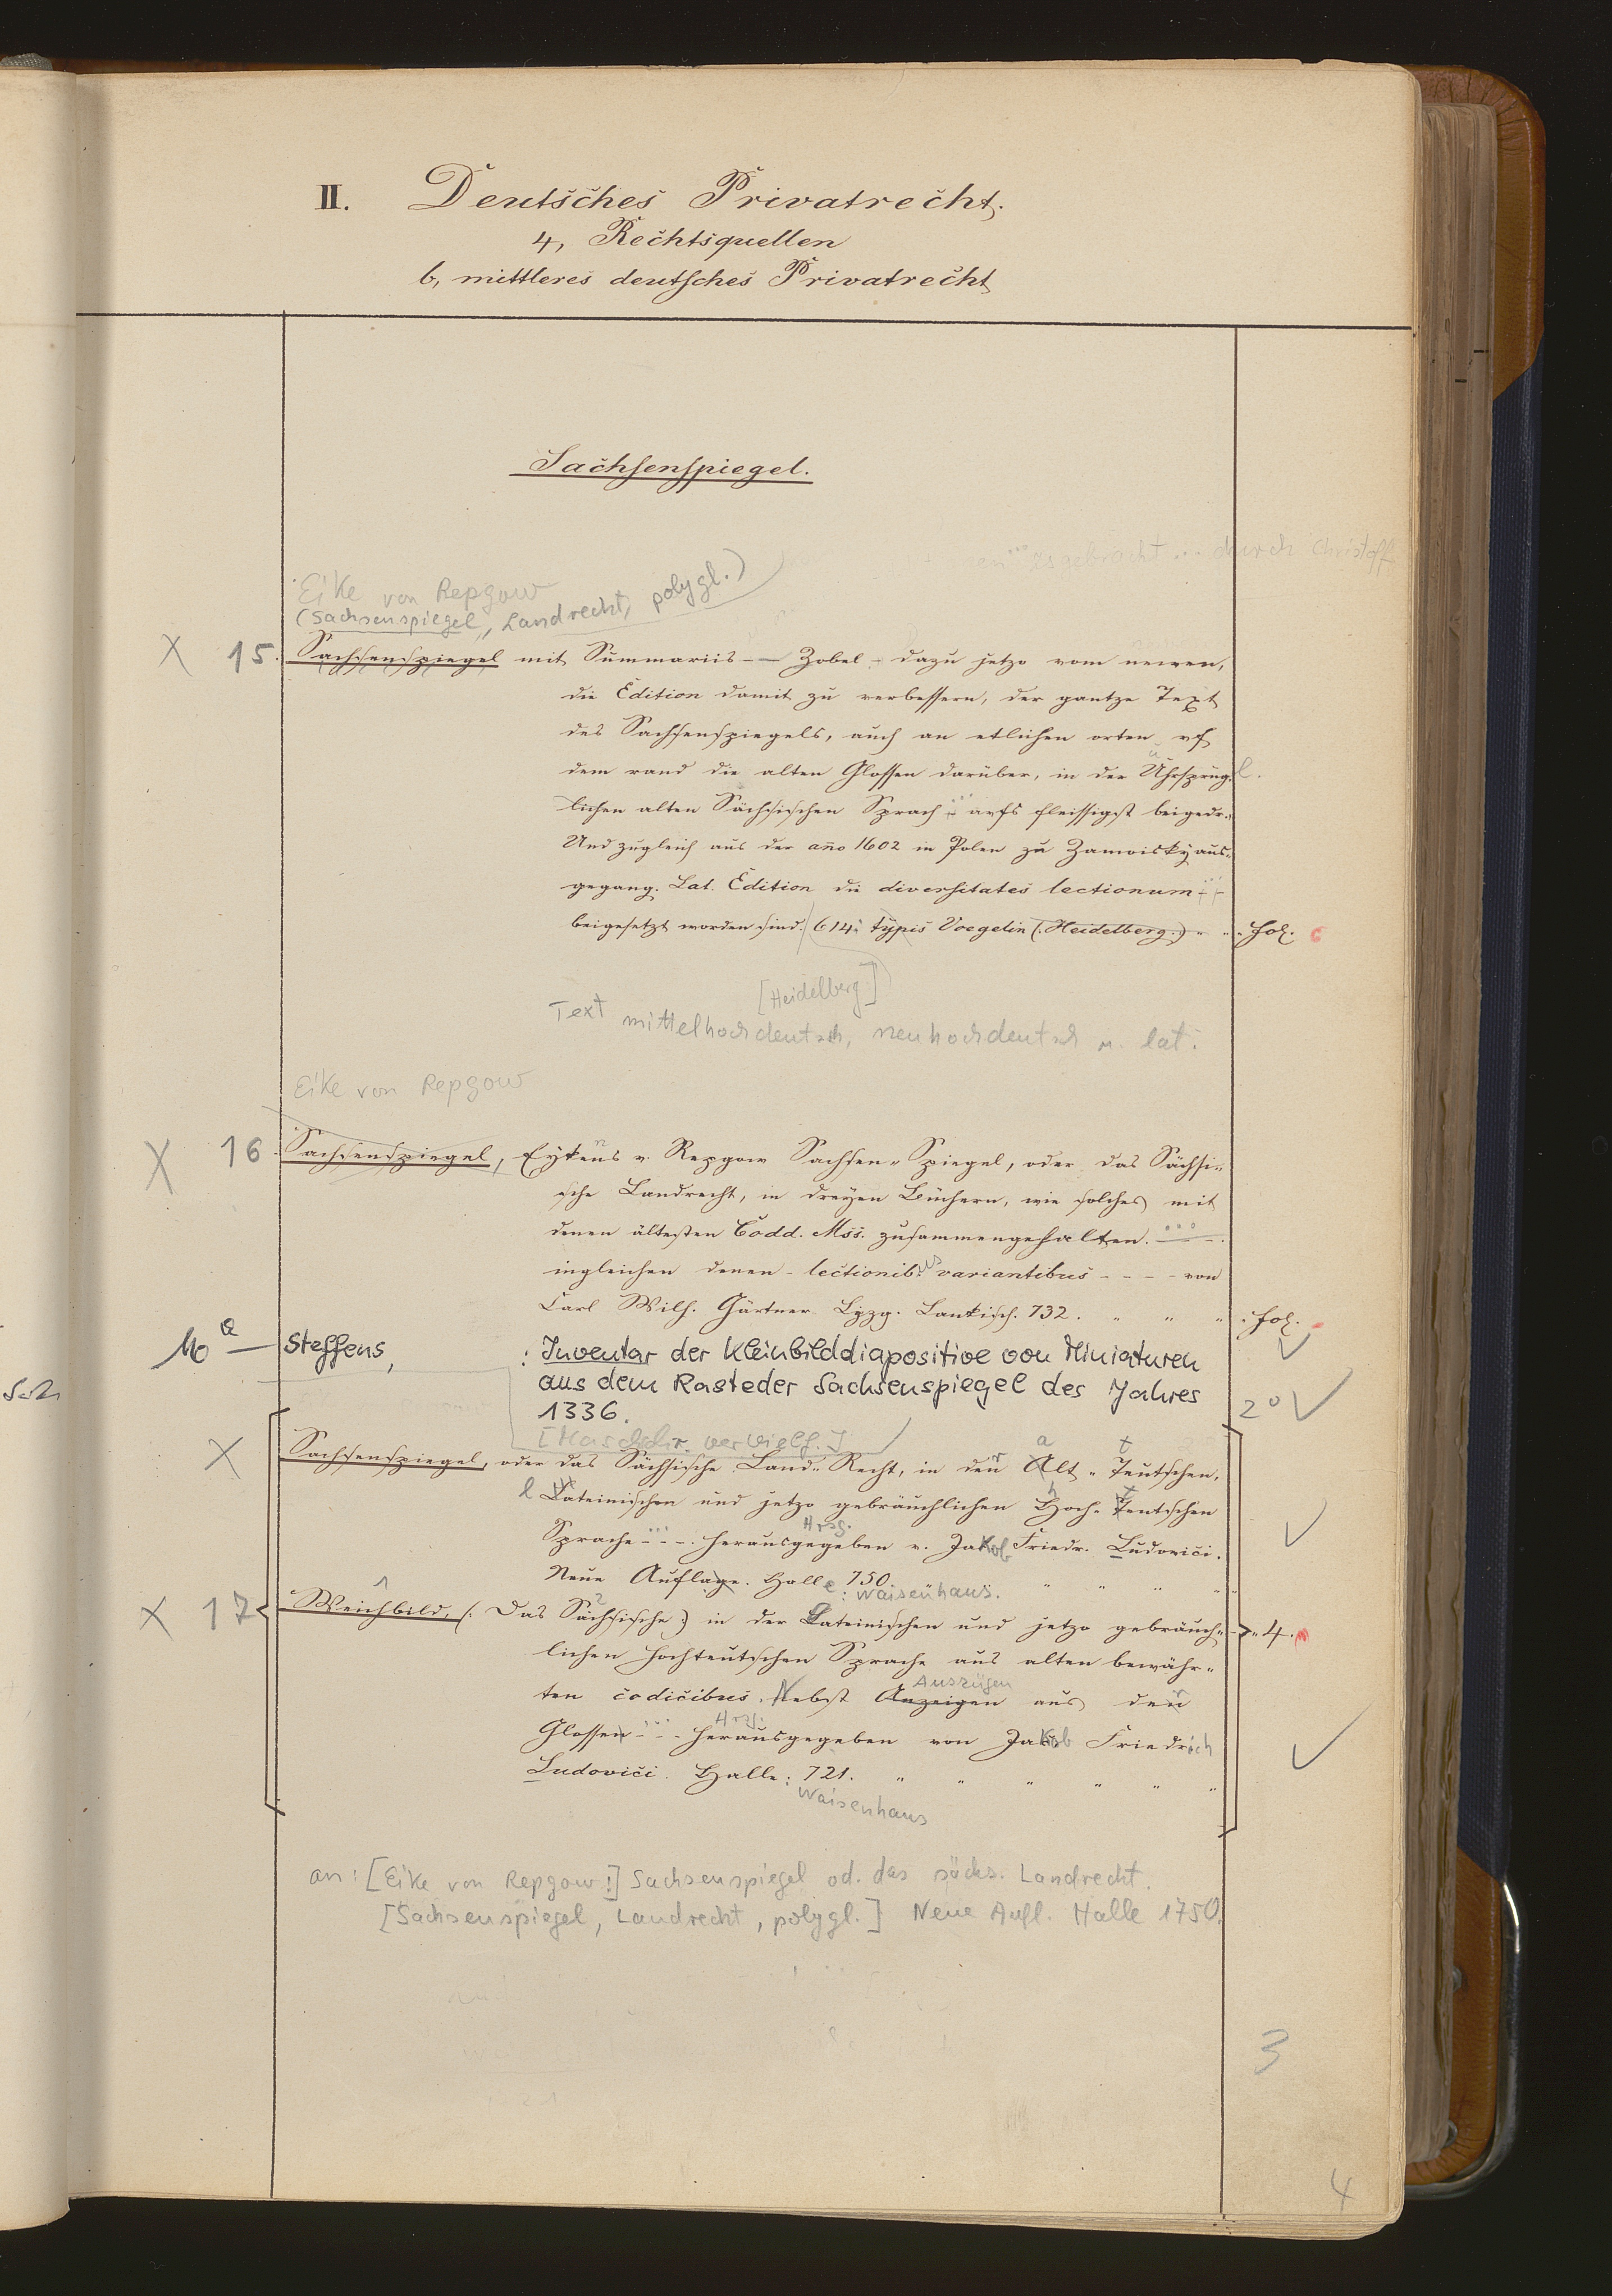 II. Deutsches Privatrecht.
4, Rechtsquellen
b, mittleres deutsches Privatrecht
Sachsenspiegel.
gebracht ... durch Christoff
Eike von Repgow
(Sachsenspiegel, Landrecht, polygl.)
X 15. Sachsenspiegel mit Summariis -- Zobel - dazu jetzo vom newen,
die Edition damit zu verbessern, der gantze Text
des Sachsenspiegels, auch an etlichen orten vf
dem rand die alten Glossen darüber, in der Uhrsprüng-
lichen alten Sächsischen Sprach ... aufs fleissigst beigedr.,
Und zugleich aus der año 1602 in Polen zu Zamoisky aus-
gegang. Lat. Edition die diversitates lectionum ...
beigesetzt worden sind. 614. typis Voegelin (. Heidelberg.) " . fol.
[Heidelberg]
Text mittelhochdeutsch, neuhochdeutsch u. lat.
Eike von Repgow
X 16. Sachsenspiegel, Eykens v. Repgow Sachsen-Spiegel, oder das Sächsi-
sche Landrecht, in dreyen Büchern, wie solches mit
denen ältesten Codd. Mss. zusammengehalten. ...
ingleichen denen - lectionib. variantibus - - - - von
Carl Wilh. Gärtner Lpzg. Lankisch. 732. " " " . fol.
Steffens, : Inventar der Kleinbilddiapositive von Miniaturen
aus dem Rasteder Sachsenspiegel des Jahres
1336. 2°
[Maschschr. vervielf.]
X Sachsenspiegel, oder das Sächsische Land-Recht, in der Alt-Teutschen,
Lateinischen und jetzo gebräuchlichen Hoch-Teutschen
Hrsg.
Sprache ... herausgegeben v. Jakob Friedr. Ludovici.
Neue Auflage. Halle 750. " " " "
: Waisenhaus.
X 17 Weichbild, (. Das Sächsische.) in der Lateinischen und jetzo gebräuch- " 4.
lichen hochteutschen Sprache aus alten bewähr-
Auszügen
ten codicibus. Nebst Anzeigen aus der
Hrsg.
Glossen ... herausgegeben von Jakob Friedrich
Ludovici. Halle: 721. " " " " " "
Waisenhaus
an: [Eike von Repgow:] Sachsenspiegel od. das sächs. Landrecht.
[Sachsenspiegel, Landrecht, polygl.] Neue Aufl. Halle 1750.
3
4